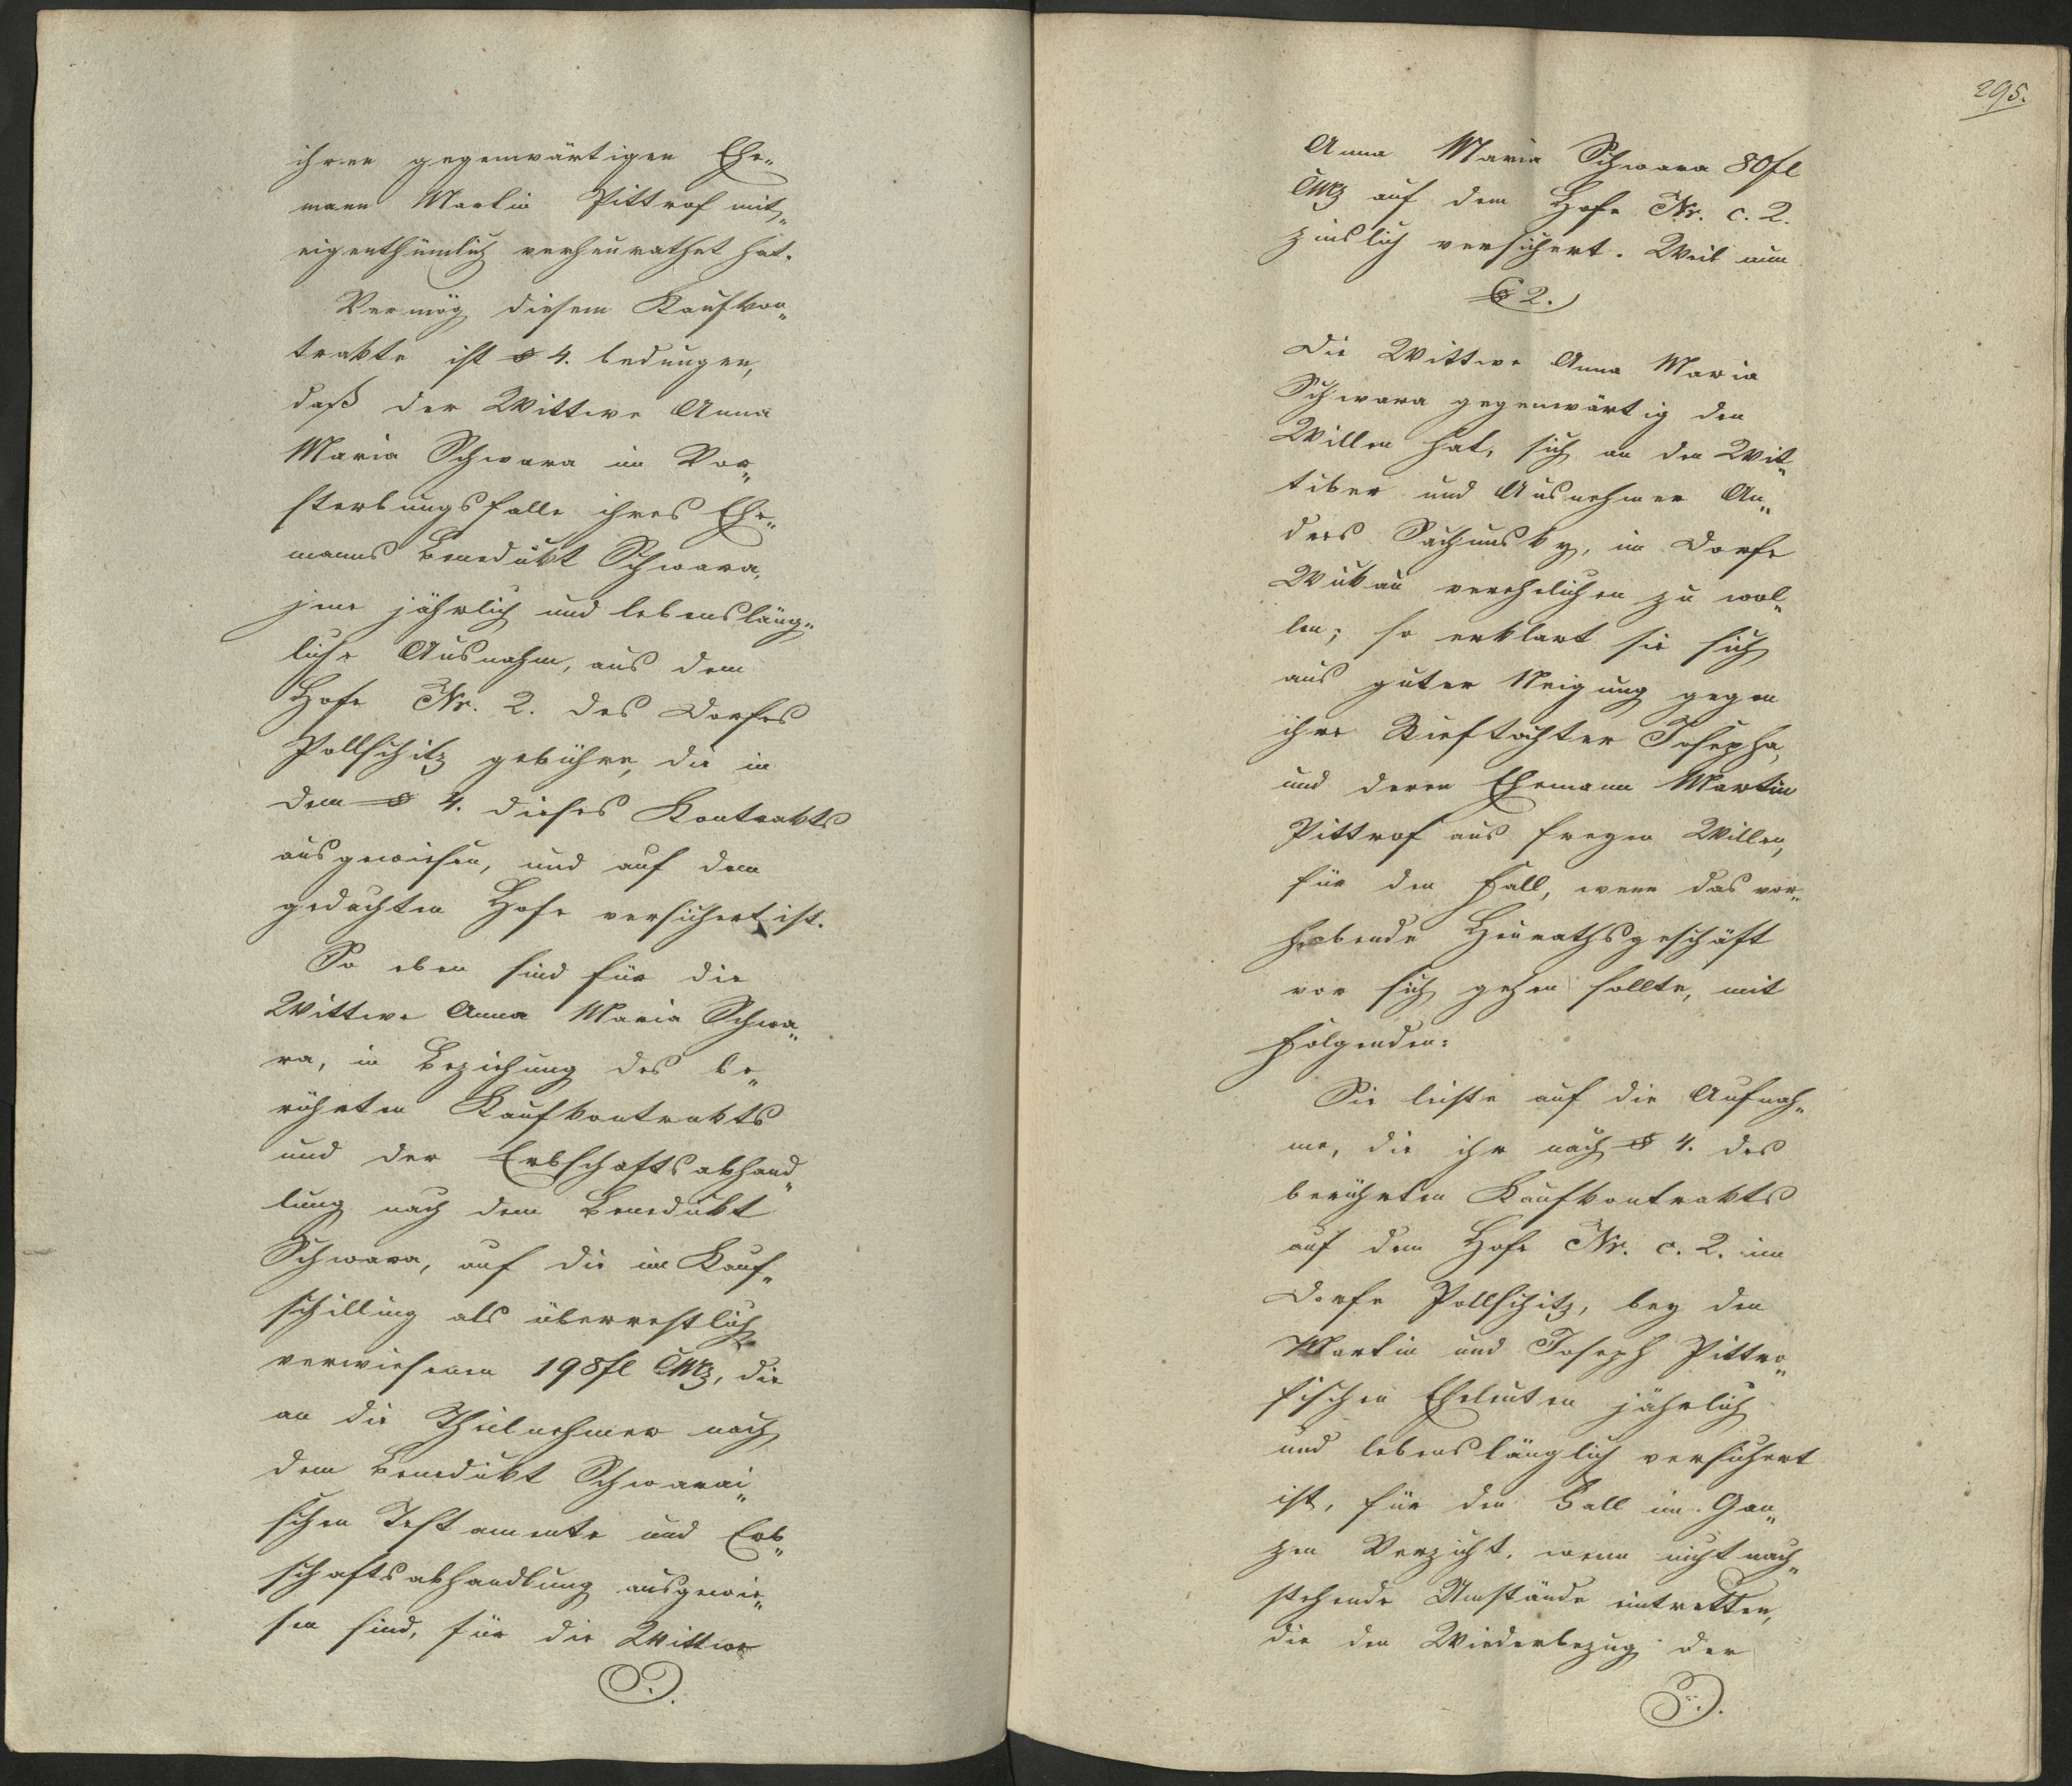 ihren gegenwärtigen Ehe„
mann Martin Pittrof mit„
eigenthümlich verheurathet hat.
Vermög diesem Kaufkon„
trakte ist § 4. bedungen,
daß der Wittwe Anna
Maria Schwara im Vor„
sterbungsfalle ihres Ehe„
manns Benedukt Schwara,
jene jährlich und lebensläng„
liche Ausnahm, aus dem
Hofe Nr. 2. des Dorfes
Pollschitz gebühre, die in
dem § 4. dieses Kontrakts
ausgewiesen, und auf dem
gedachten Hofe versichert ist.
So eben sind für die
Wittwe Anna Maria Schwa„
ra, in Beziehung des be„
rührten Kaufkontrakts
und der Erbschaftsabhand„
lung nach dem Benedukt
Schwara, auf die im Kauf„
schilling als überrestlich
verwiesenen 198fl CMz, die
an die Theilnehmer nach
dem Benedukt Schwarai„
schen Testamente und Erb„
schaftsabhandlung ausgewie„
sen sind, für die Wittwe
295.
Anna Maria Schwara 80fl
CMz auf dem Hofe Nr. c. 2.
zinslich versichert. Weil nun
§ 2.
Die Wittwe Anna Maria
Schwara gegenwärtig den
Willen hat, sich an den Wit„
tiber und Ausnehmer An„
dres in Dorfe
Wukau verehelichen zu wol„
len; so erklart sie sich
aus guter Neigung gegen
ihre Stieftochter Josepha,
und deren Ehemann Martin
Pittrof aus freyen Willen,
für den Fall, wenn das vor„
habende Heurathsgeschäft
vor sich gehen sollte, mit
Folgenden:
Sie leiste auf die Aufnah„
me, die ihr nach § 4. des
berührten Kaufkontrakts
auf dem Hofe Nr. c. 2. im
Dorfe Pollschitz, bey den
Martin und Joseph Pittro„
fischen Eheleuten jährlich
und lebenslänglich versichert
ist, für den Fall im Gan„
zen Verzicht, wenn nicht nach„
stehende Umstände eintretten,
die den Wiederbezug der